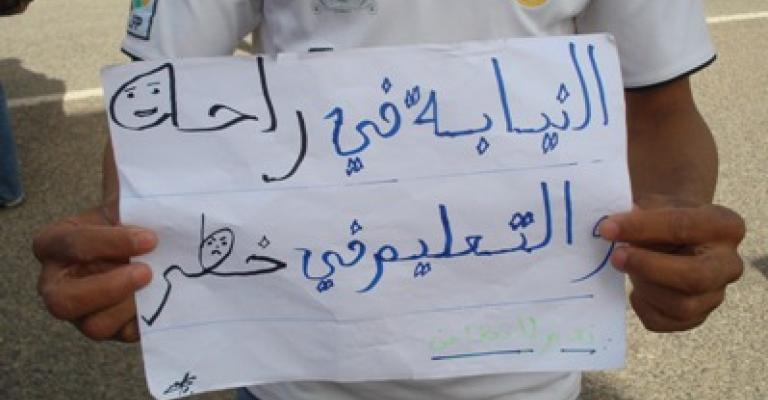 النيابة في راحة
والتعليم في خطر